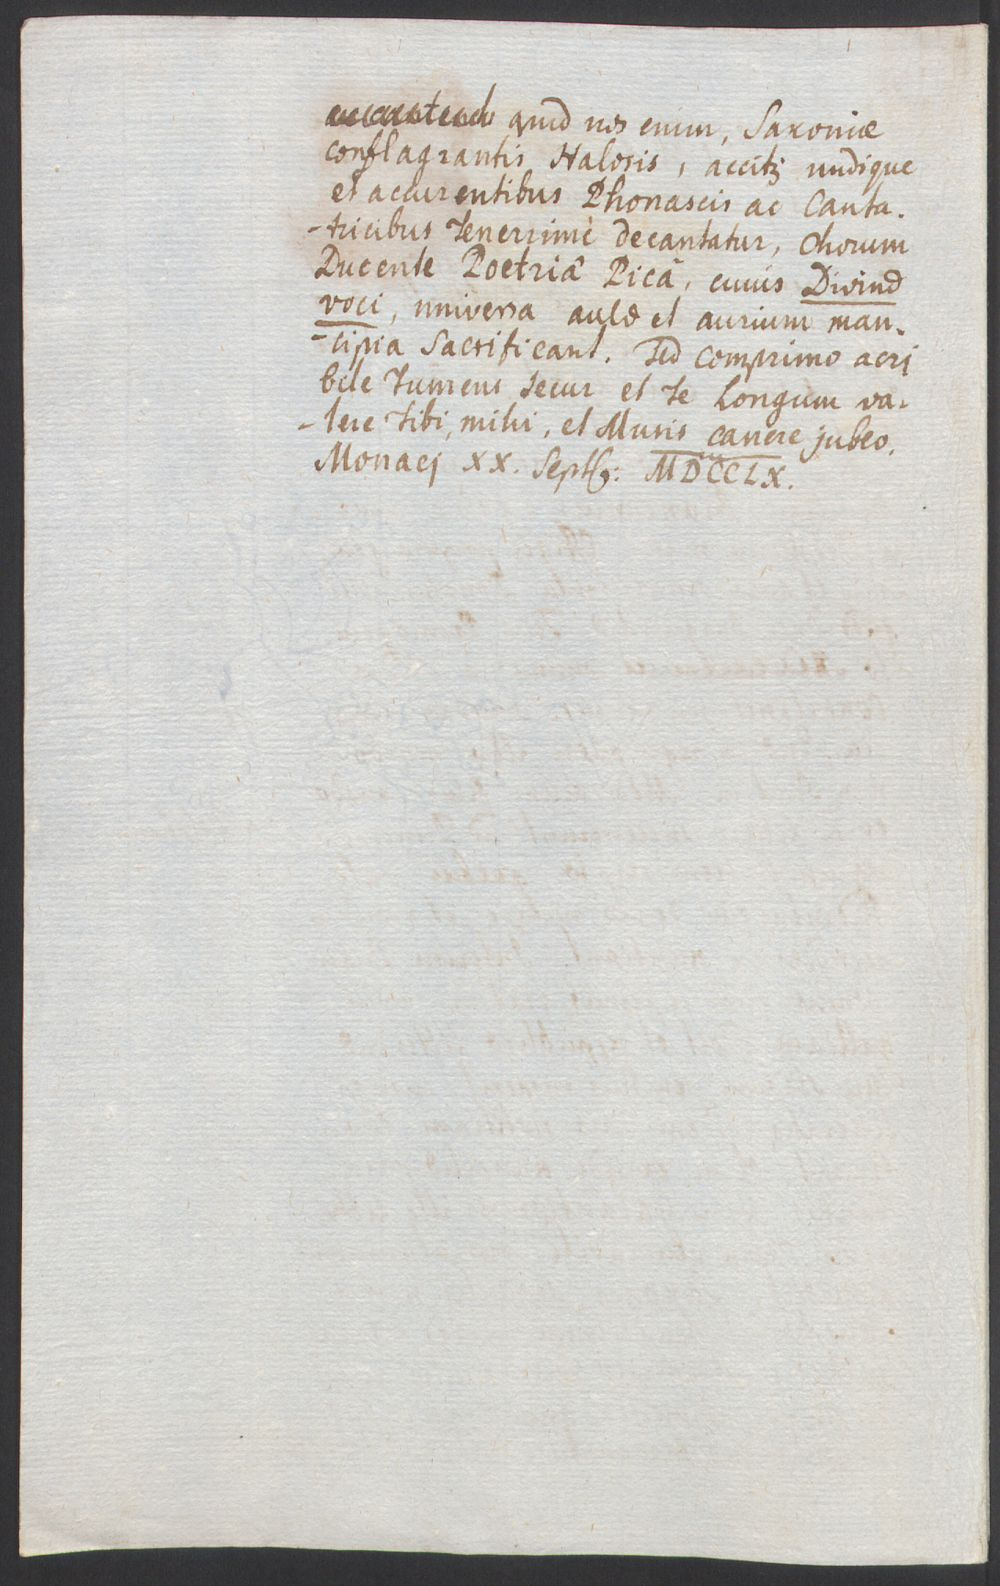 quid nos enim, Saxoniæ
conflagrantis Halosis, accitis undique
et accurentibus Phonascis ac Canta-
-tricibus Tenerrimè decantatur, chorum
Ducente Poetriâ Picâ, cuius Divinæ
voci, universa aulæ et aurium man-
-cipia Sacrificant. Sed comprimo acri
bile Tumens Jecur et Te Longum va-
-lere tibi, mihi, et Musis canere jubeo.
Monacj XX. Septb: MDCCLX.